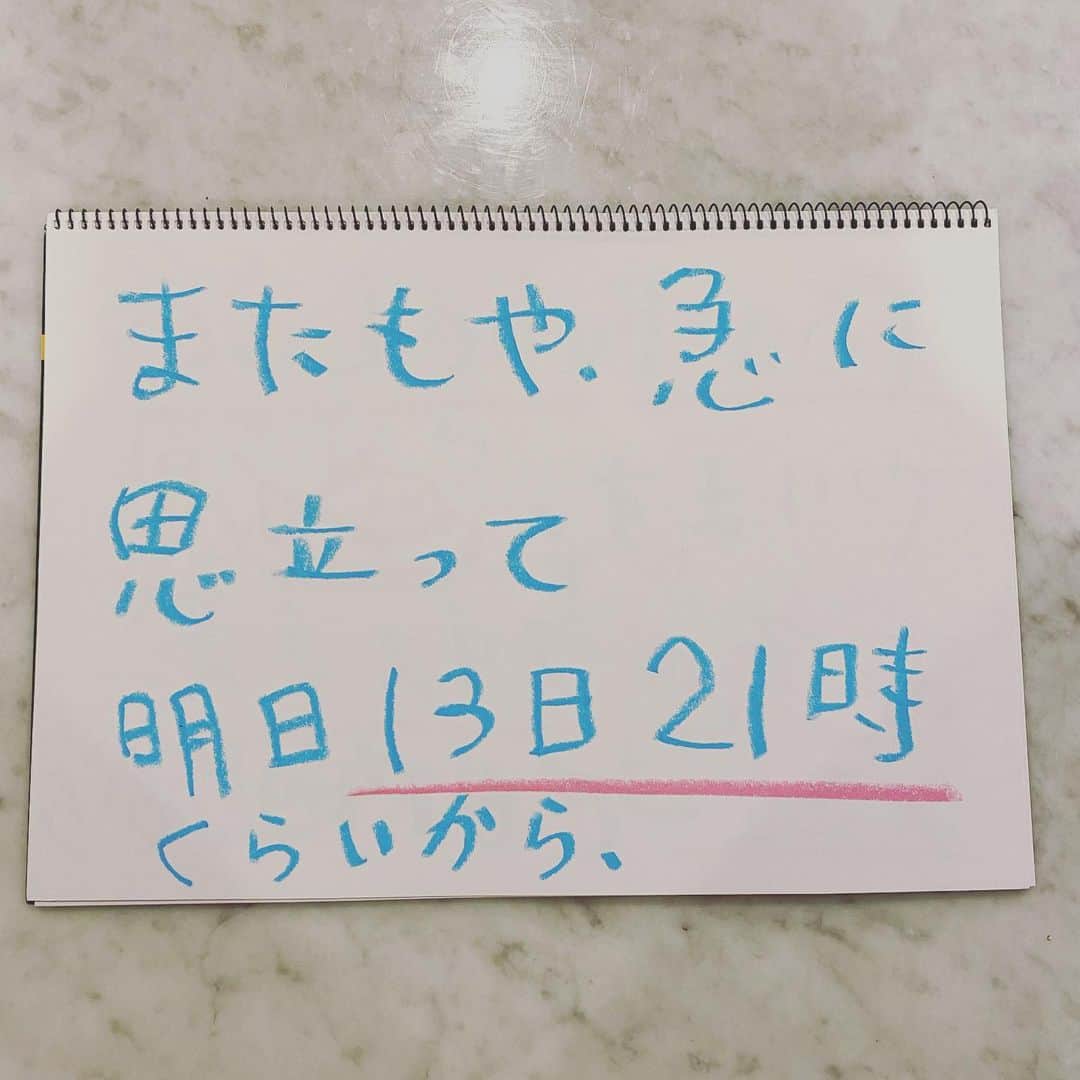 またもや、急に
思立って
明日13日21時
くらいから、